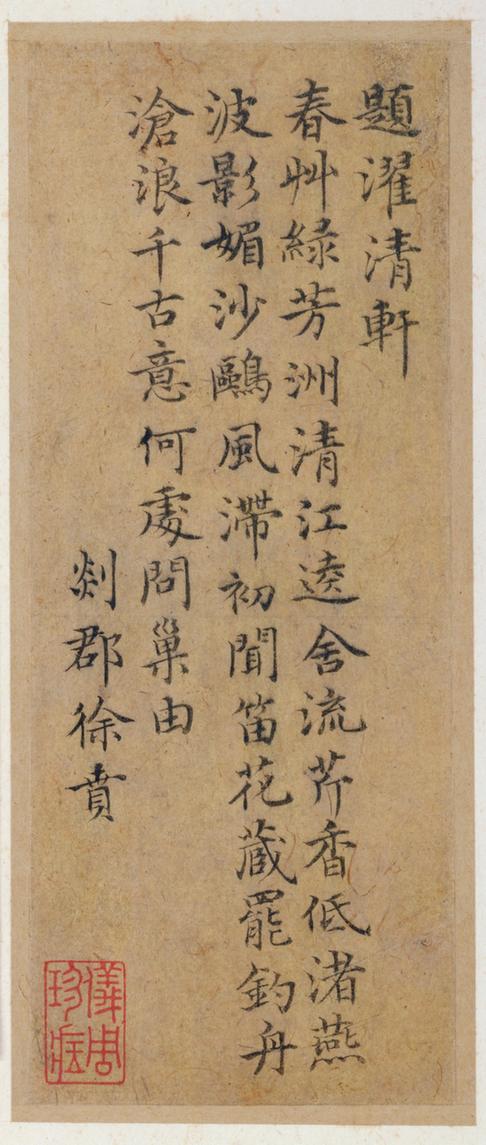 題濯清軒
春艸綠芳洲清江遶舍流芹香低渚燕
波影媚沙鷗風滯初聞笛花藏罷釣舟
滄浪千古意何處問巢由
剡郡徐賁
儀周
珍藏